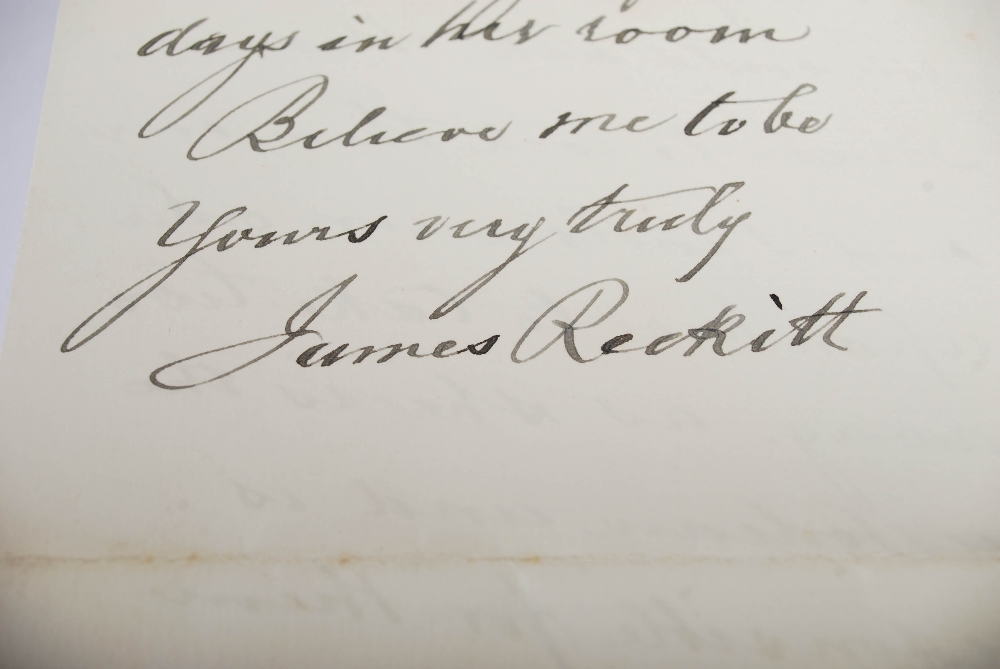 days in her room
Believe me to be
Yours very truly
James Reckitt